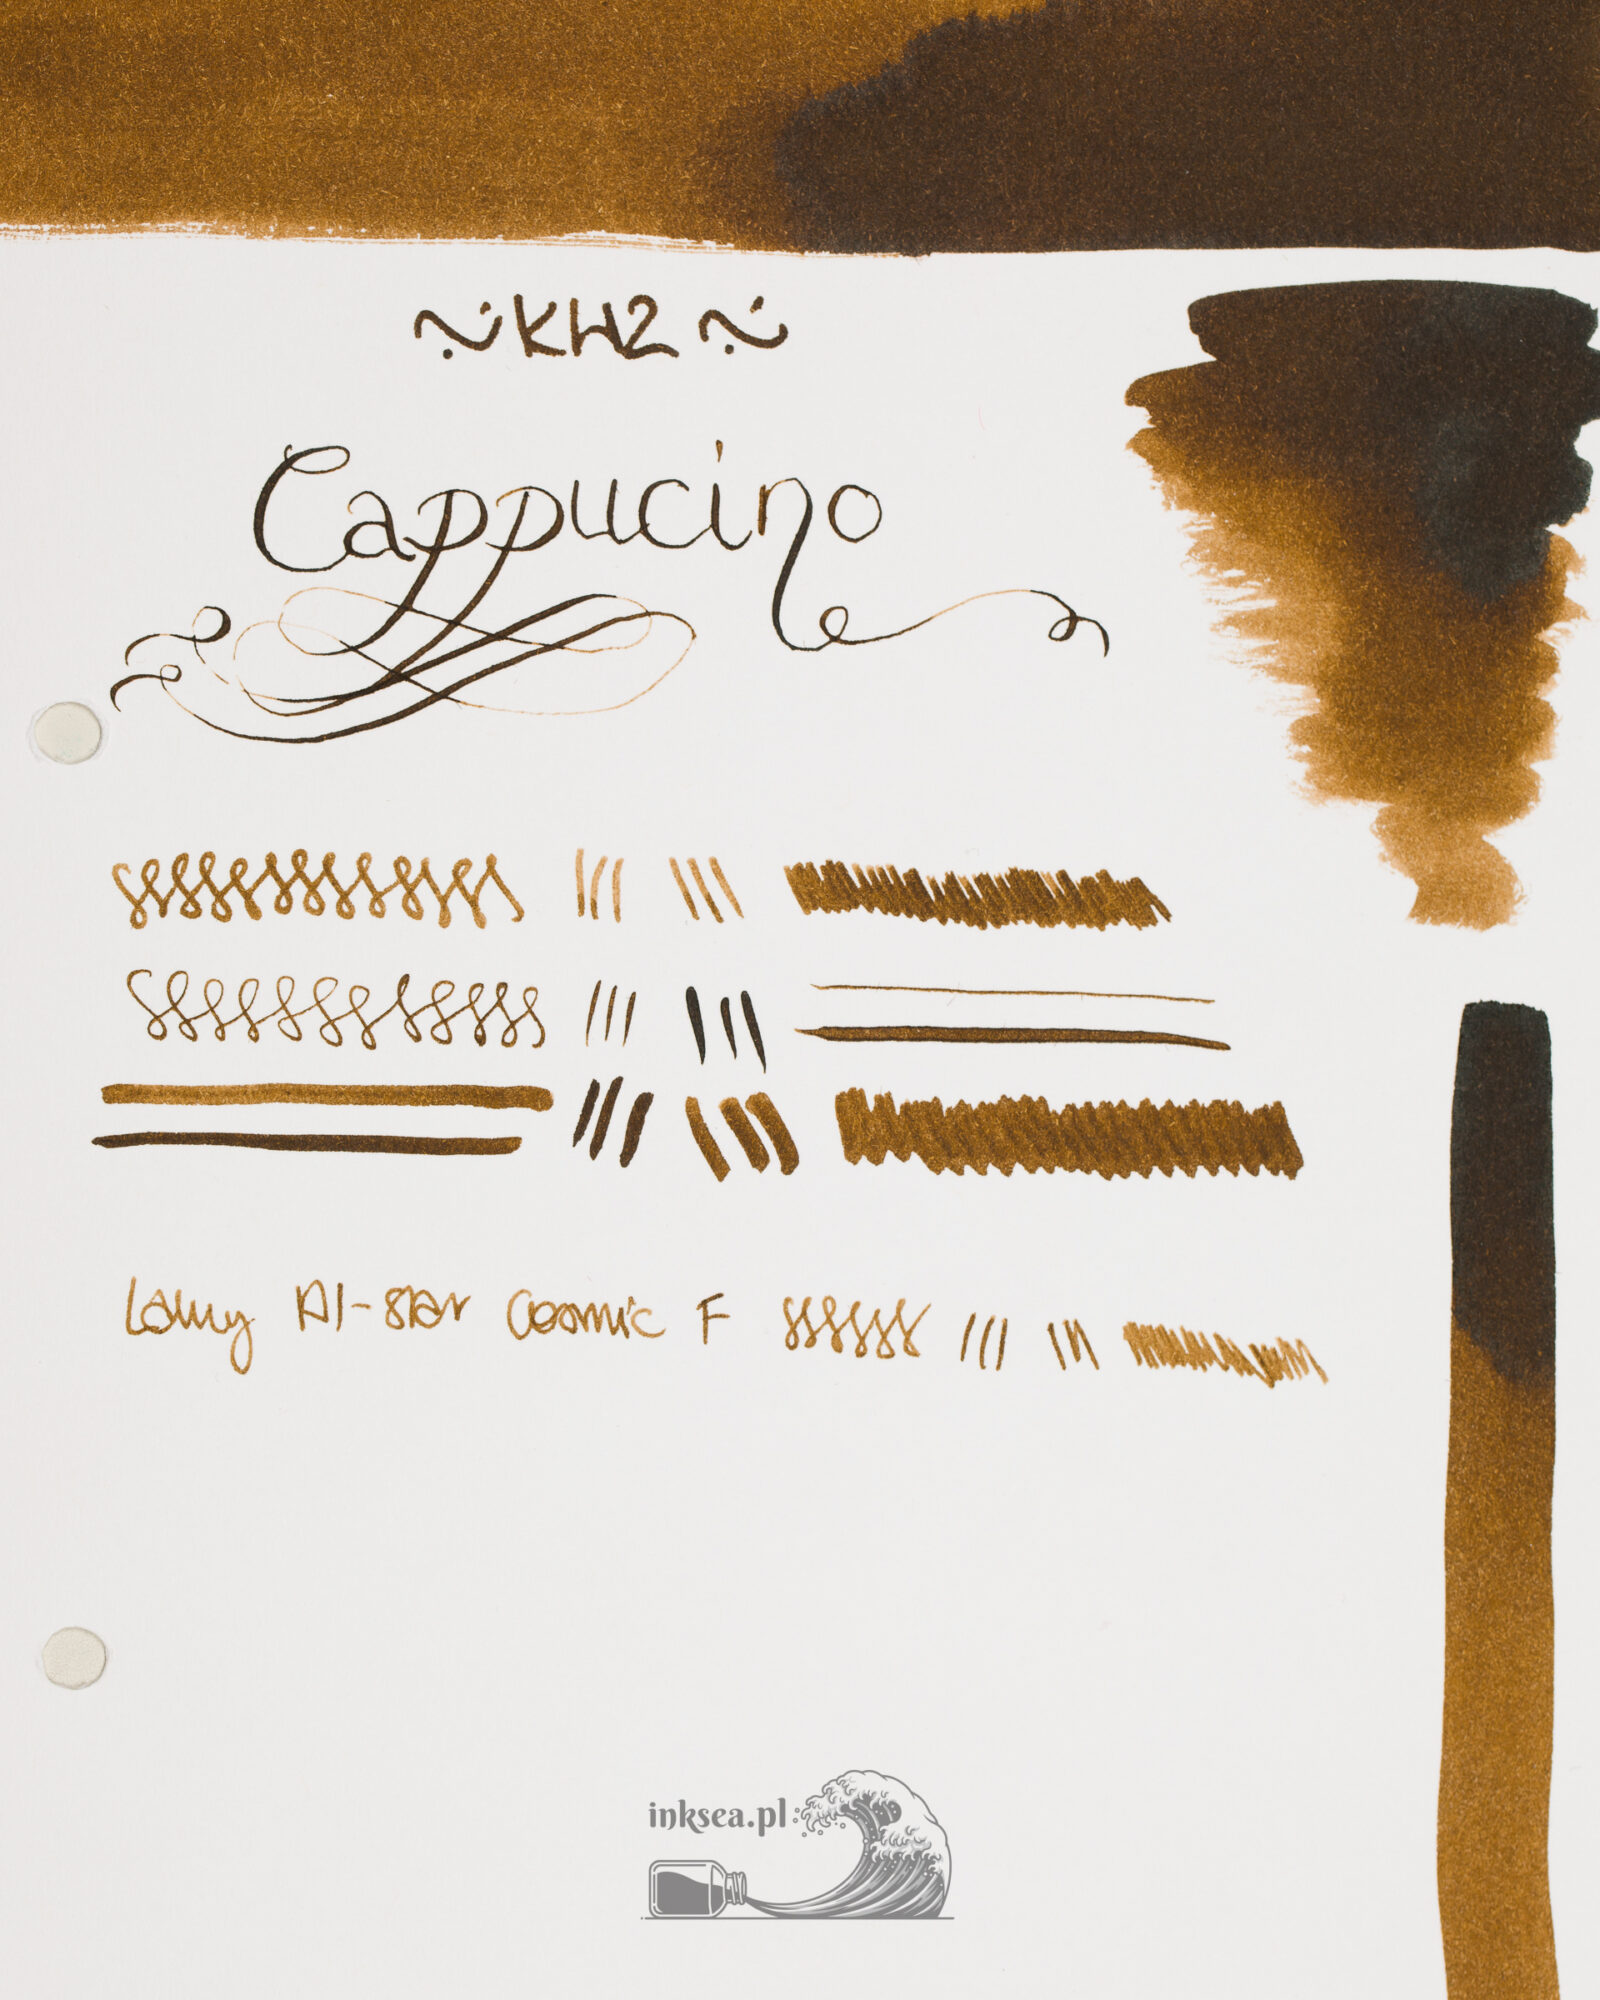 ~ KWZ ~
Cappucino
Lamy Al-star Cosmic F
inksea.pl